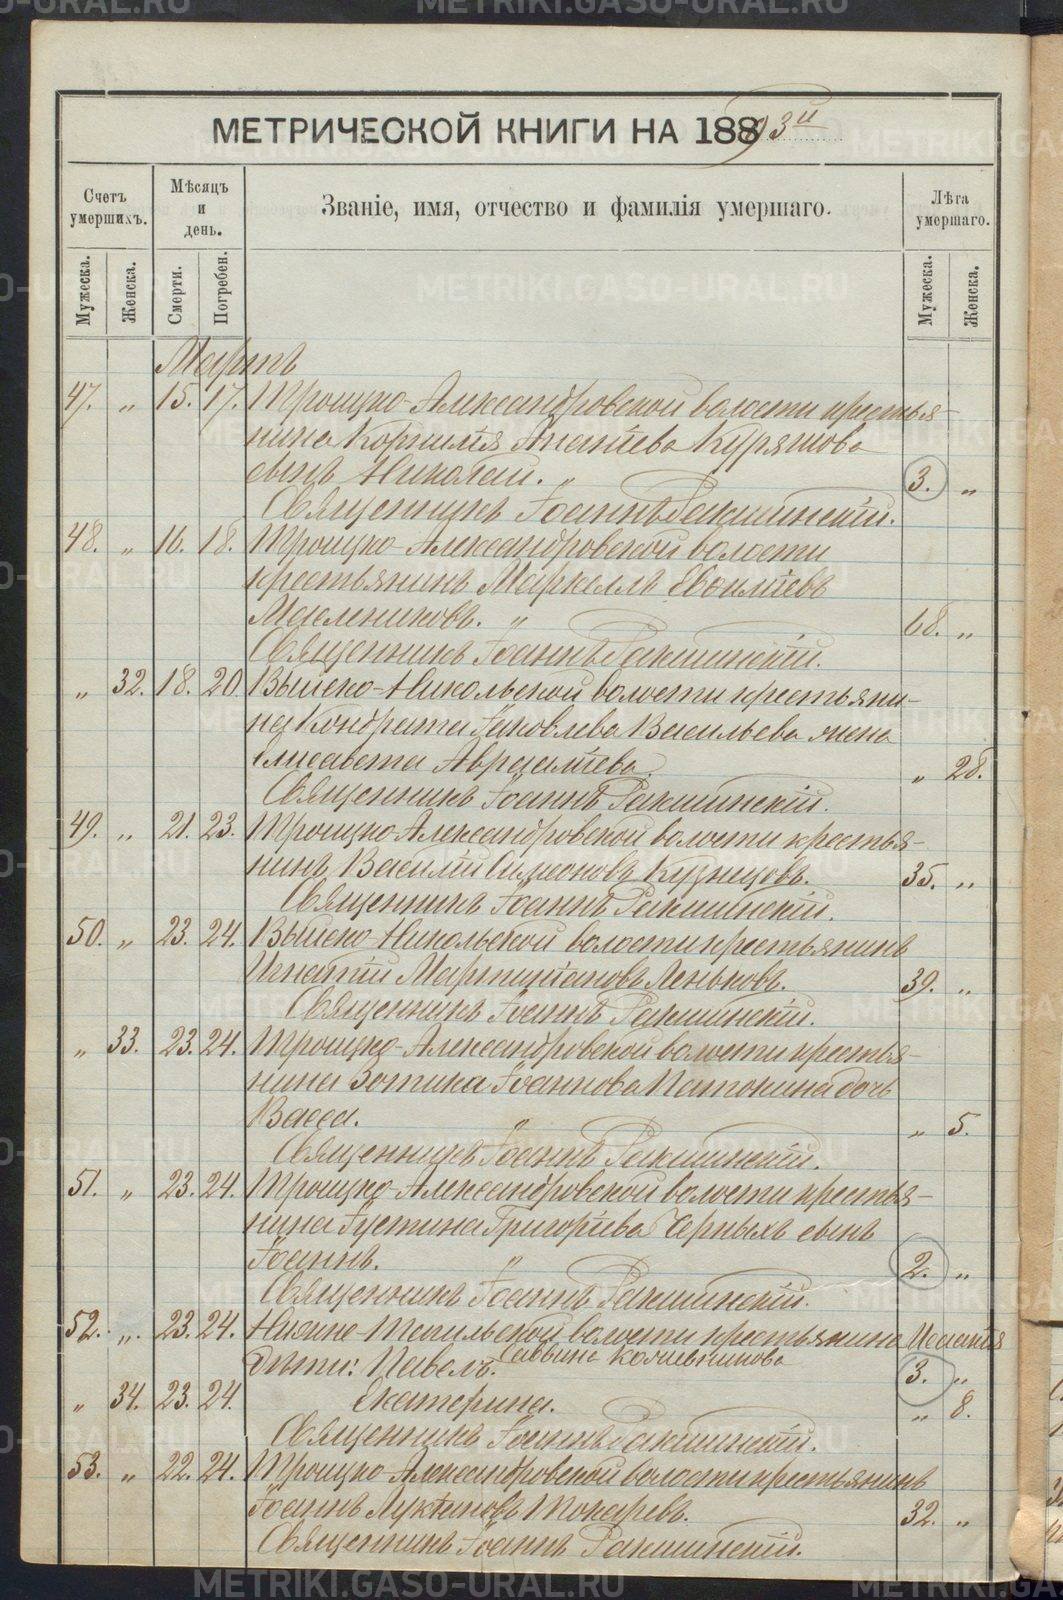 МЕТРИЧЕСКОЙ КНИГИ НА 18893й
Счетъ умершихъ.
Мѣсяцъ и день.
Званіе, имя, отчество и фамилія умершаго.
Лѣта умершаго.
Мужеска. Женска. Смерти. Погребен. Мужеска. Женска.
Мартъ
47. „ 15. 17. Троицко-Александровской волости крестья-
нина Корнилія Ананіева Куряшова
сынъ Николай. „ 3. „
Священникъ Іоаннъ Ракшинскій.
48. „ 16. 18. Троицко-Александровской волости
крестьянинъ Маркеллъ Евоиліевъ
Мѣлениковъ. „ 68. „
Священникъ Іоаннъ Ракшинскій.
„ 32. 18. 20. Выйско-Никольской волости крестьяни-
на Кондрата Іаковлева Васильева жена
Елисавета Авраамiева. „ 28.
Священникъ Іоаннъ Ракшинскій.
49. „ 21. 23. Троицко-Александровской волости крестья-
нинъ Василій Симоновъ Кузнецовъ. 35. „
Священникъ Іоаннъ Ракшинскій.
50. „ 23. 24. Выйско-Никольской волости крестьянинъ
Игнатій Мартиніановъ Леньковъ. 39. „
Священникъ Іоаннъ Ракшинскій.
„ 33. 23. 24. Троицко-Александровской волости крестья-
нина Зотика Іоаннова Патокина дочь
Васса. „ „ 5.
Священникъ Іоаннъ Ракшинскій.
51. „ 23. 24. Троицко-Александровской волости крестья-
нина Іустина Григоріева Черныхъ сынъ
Іоаннъ. „ 2. „
Священникъ Іоаннъ Ракшинскій.
52. „ 23. 24. Нижне-Тагильской волости крестьянина Исаакія
Саввина
дѣти: Павелъ. 3. „
„ 34. 23. 24. Екатерина. „ 8.
Священникъ Іоаннъ Ракшинскій.
53. „ 22. 24. Троицко-Александровской волости крестьянинъ
Іоаннъ Токаревъ. 32. „
Священникъ Іоаннъ Ракшинскій.
METRIKI.GASO-URAL.RU